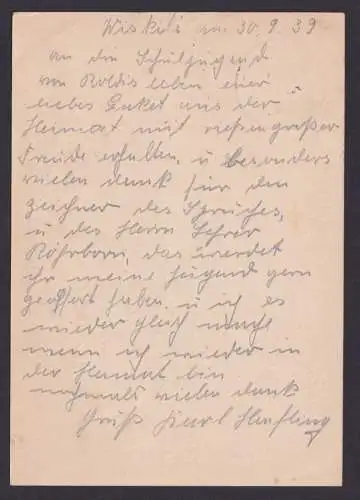 am 30. 9. 39
an die Schuljugend
von Roldisleben euer
liebes Paket aus der
Heimat mit riesengroßer
Freude erhalten, u besonders
vielen dank für den
zeichner des Spruches,
u des Herrn Lehrer
Röhrborn, das werdet
ihr meine Jugend gern
geopfert haben u ich es
wieder gleich mache
wenn ich wieder in
der Heimat bin
nochmals vielen dank
Gruß Karl Henfling